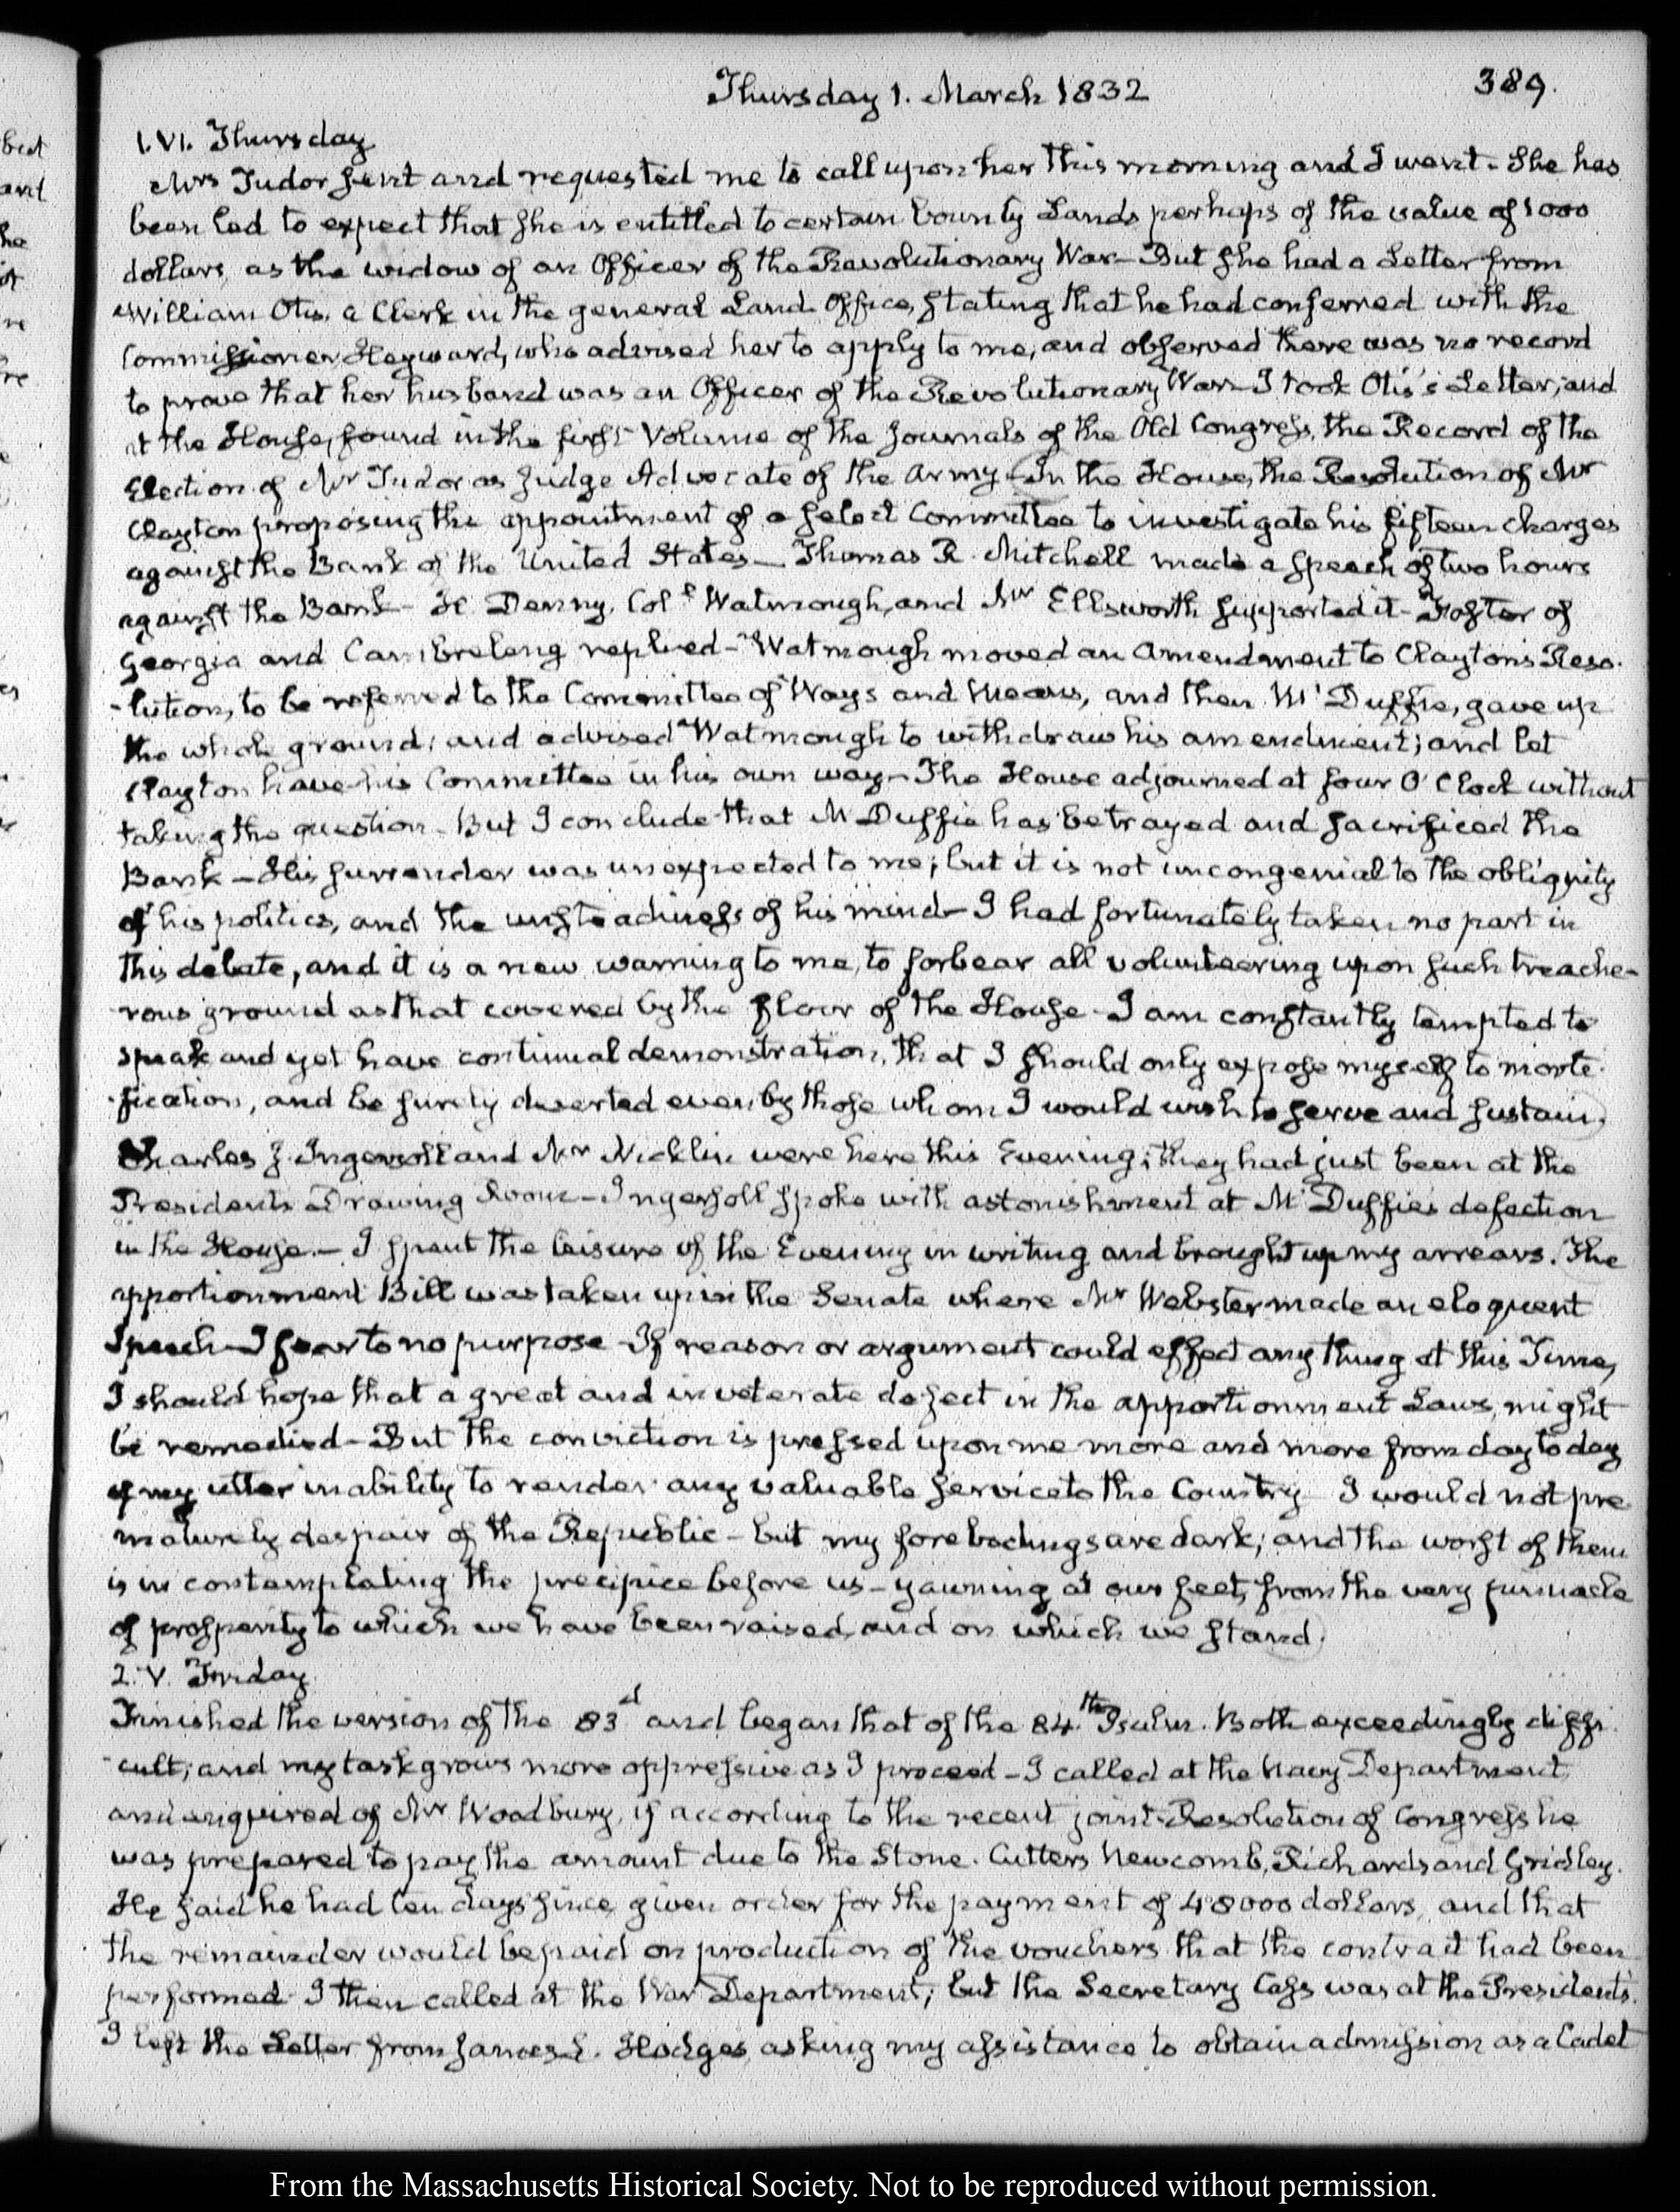 Thursday 1. March 1832
389.
1. VI. Thursday
Mrs Tudor sent and requested me to call upon her this morning and I went - She has
been led to expect that she is entitled to certain bounty Lands perhaps of the value of 1000
dollars, as the widow of an Officer of the Revolutionary War - But she had a Letter from
William Otis, a Clerk in the general Land Office, stating that he had conferred with the
Commissioner Hayward, who advised her to apply to me, and observed there was no record
to prove that her husband was an Officer of the Revolutionary War - I took Otis's Letter, and
at the House, found in the first Volume of the Journals of the Old Congress, the Record of the
Election of Mr Tudor as Judge Advocate of the army - In the House, the Resolution of Mr
Clayton proposing the appointment of a select Committee to investigate his fifteen charges
against the Bank of the United States - Thomas R. Mitchell made a speech of two hours
against the Bank - H. Denny, Coll Watmough, and Mr Ellsworth supported it - Foster of
Georgia and Cambreleng replied - Watmough moved an Amendment to Clayton's Reso-
-lution, to be referred to the Committee of Ways and Means, and then McDuffie, gave up
the whole ground, and advised Watmough to withdraw his amendment; and let
Clayton have his Committee in his own way - The House adjourned at four O'Clock without
taking the question. But I conclude that McDuffie has betrayed and sacrificed the
Bank - His surrender was unexpected to me; but it is not uncongenial to the obliquity
of his politics, and the unsteadiness of his mind - I had fortunately taken no part in
this debate, and it is a new warning to me, to forbear all volunteering upon such treache-
rous ground as that covered by the floor of the House - I am constantly tempted to
speak and yet have continual demonstration, that I should only expose myself to morti-
-fication, and be surely deserted even by those whom I would wish to serve and sustain.
Charles J. Ingersoll and Mr Nicklin were here this Evening; they had just been at the
Presidents Drawing Room - Ingersoll spoke with astonishment at McDuffie's defection
in the House. - I spent the leisure of the Evening in writing and brought up my arrears. The
apportionment Bill was taken up in the Senate where Mr Webster made an eloquent
Speech - I fear to no purpose - If reason or argument could effect any thing at this Time,
I should hope that a great and inveterate defect in the apportionment Laws, might
be remedied - But the conviction is pressed upon me more and more from day to day
of my utter inability to render any valuable service to the Country I would not pre
maturely despair of the Republic - but my forebodings are dark; and the worst of them
is in contemplating the precipice before us - yawning at our feet, from the very pinnacle
of prosperity to which we have been raised, and on which we stand.
2. V. Friday.
Finished the version of the 83d and began that of the 84th Psalm. Both exceedingly diffi-
-cult; and my task grows more oppressive as I proceed - I called at the Navy Department
and enquired of Mr Woodbury, if according to the recent joint Resolution of Congress he
was prepared to pay the amount due to the Stone. Cutters Newcomb, Richards and Gridley.
He said he had ten days since, given order for the payment of 48000 dollars, and that
the remainder would be paid on production of the vouchers that the contract had been
performed I then called at the War Department; but the Secretary Cass was at the Presidents.
I left the Letter from James L. Hodges, asking my assistance to obtain admission as a Cadet
From the Massachusetts Historical Society. Not to be reproduced without permission.